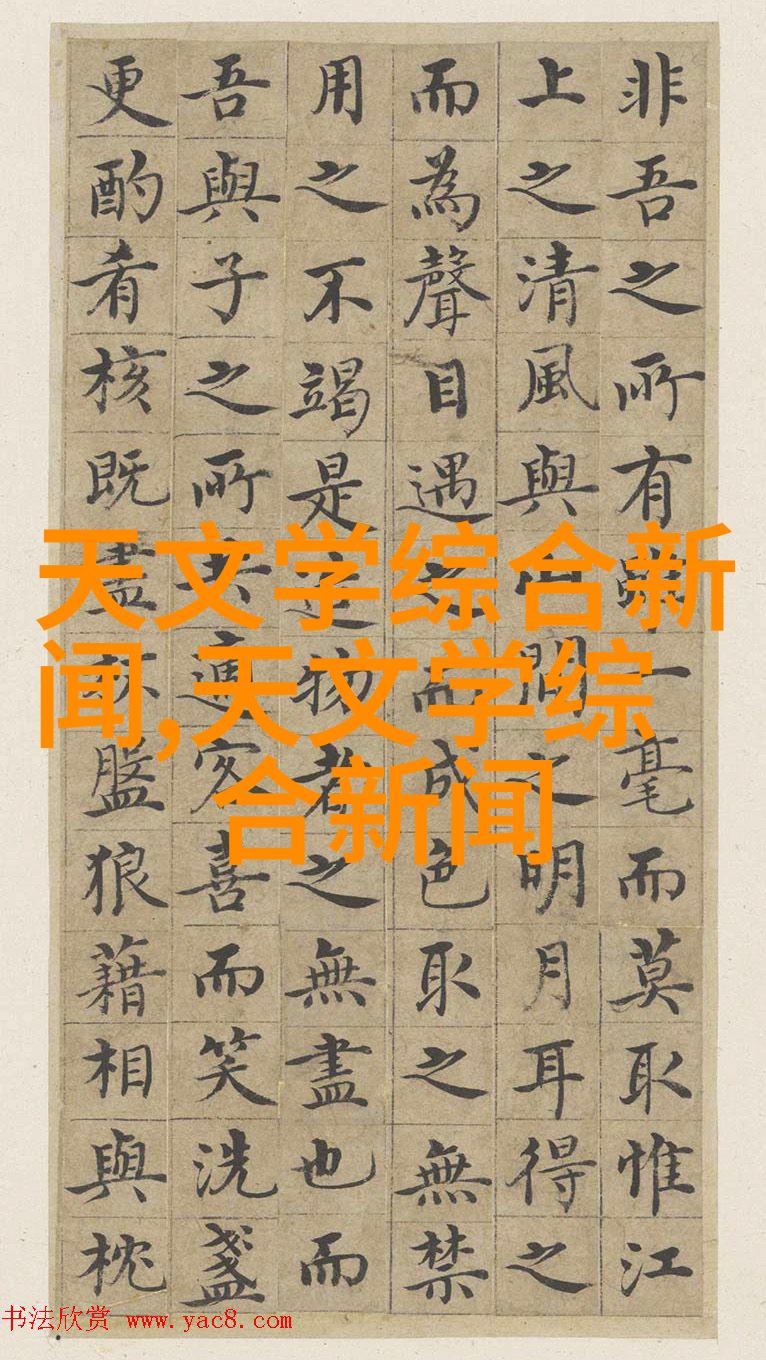 非吾之所有雖一毫而莫取惟江
上之清風與山間之明月耳得之
而為聲目遇之而成色取之無禁
用之不竭是造物者之無盡也而
吾與子之所共適客喜而笑洗盞
更酌肴核既盡杯盤狼藉相與枕
天文学综合新
闻,天文学综
合新闻
书法欣赏 www.yac8.com